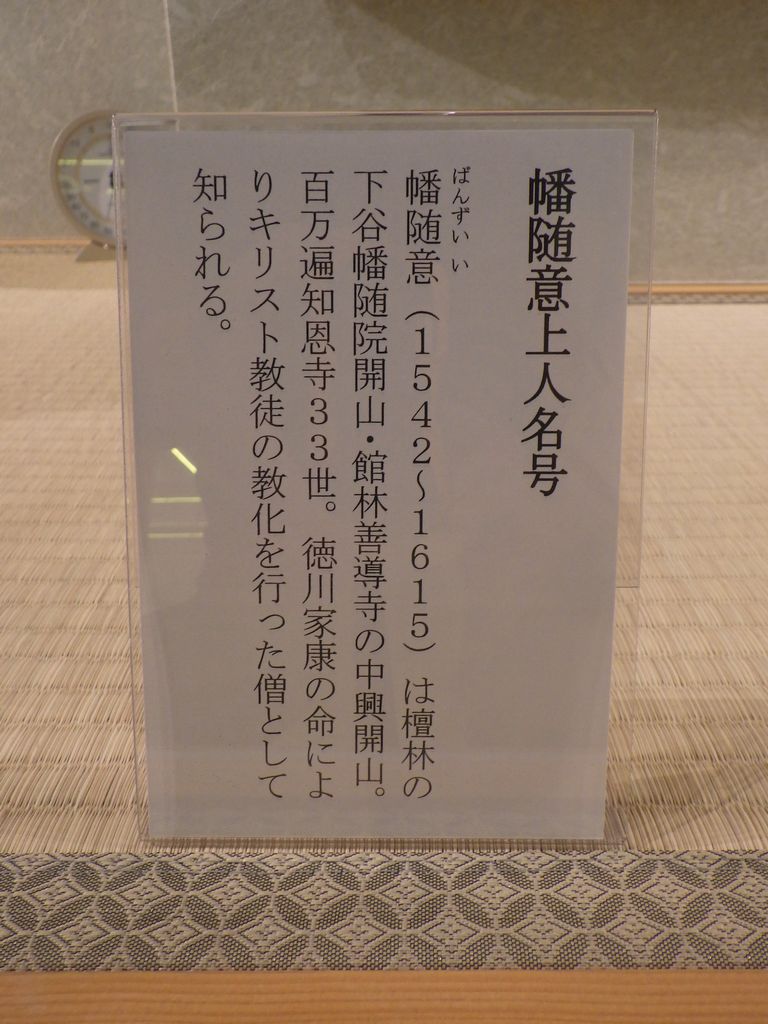 幡随意上人名号
ばんずいい
幡随意（１５４２～１６１５）は檀林の
下谷幡随院開山・館林善導寺の中興開山。
百万遍知恩寺３３世。徳川家康の命によ
りキリスト教徒の教化を行った僧として
知られる。